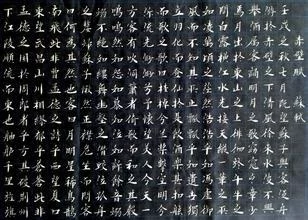 赤壁賦
壬戌之秋七月既望蘇子與客泛
舟遊於赤壁之下清風徐來水波不興
舉酒屬客誦明月之詩歌窈窕之章少
焉月出於東山之上徘徊於斗牛之
間白露橫江水光接天縱一葦之所
如凌萬頃之茫然浩浩乎如馮虛御
風而不知其所止飄飄乎如遺世獨
立羽化而登仙於是飲酒樂甚扣舷
而歌之歌曰桂棹兮蘭槳擊空明兮
泝流光渺渺兮予懷望美人兮天一
方客有吹洞簫者倚歌而和之其聲
嗚嗚然如怨如慕如泣如訴餘音嫋
嫋不絕如縷舞幽壑之潛蛟泣孤舟
之嫠婦蘇子愀然正襟危坐而問客
曰何為其然也客曰月明星稀烏鵲
南飛此非曹孟德之詩乎西望夏口
東望武昌山川相繆鬱乎蒼蒼此非
孟德之困於周郎者乎方其破荊州
下江陵順流而東也舳艫千里旌旗